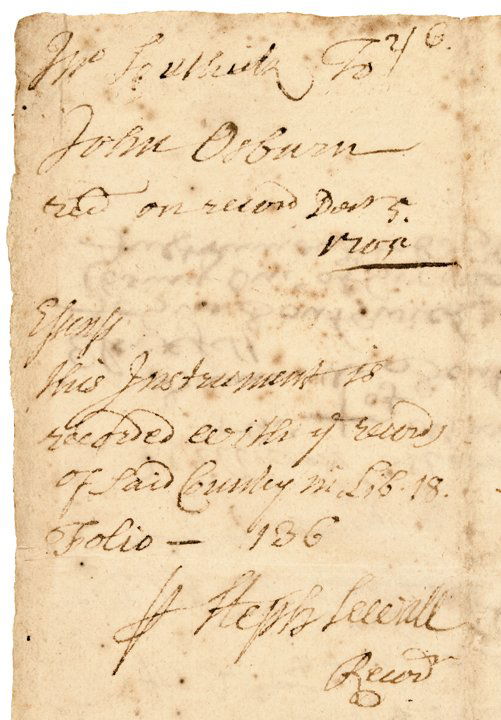 2/6.
Jno Southwick To
John Osburn
recd on record Decr 5.
1705
Essex ss
this Instrument is
recorded with ye records
of said County in Lib. 18.
Folio — 136
Steph Sewall
Recordr